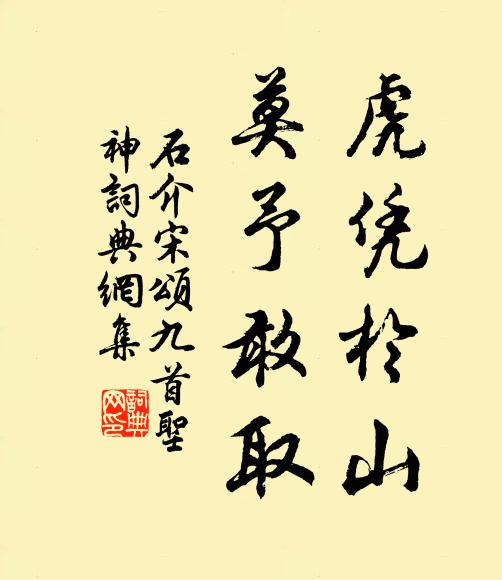 虎凭於山
莫予敢取
石介宋頌九首聖
神詞典網集
詞典
网印